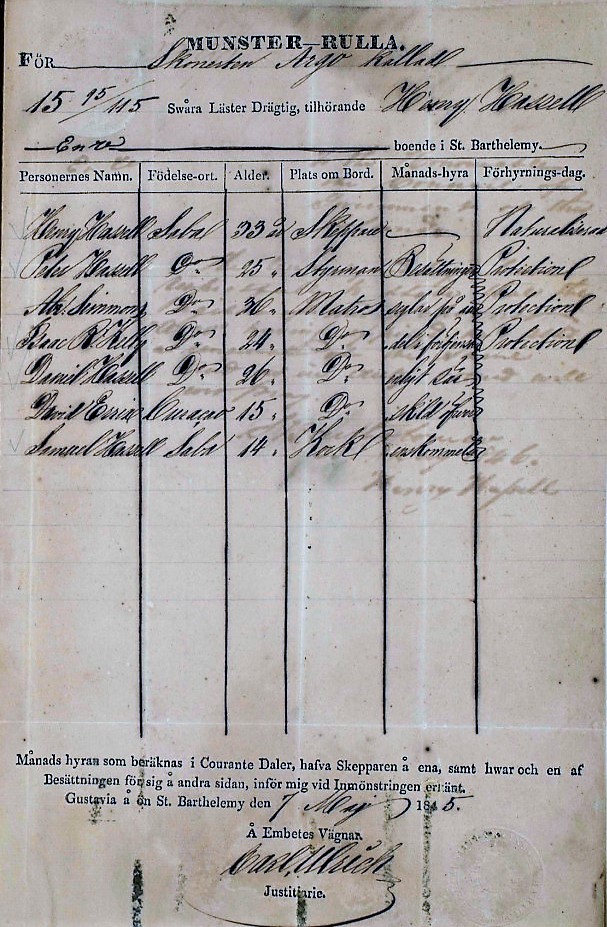 MUNSTER-RULLA.
FÖR Skonerten Argo kallad
15 95/115 Swåra Läster Drägtig, tilhörande Henry Hassell
boende i St. Barthelemy.
Personernes Namn. Födelse-ort. Alder. Plats om Bord. Månads-hyra Förhyrnings-dag.
Henry Hassell Saba 33 år Skeppare Naturaliserad
Peter Hassell Do 25 " Styrman Besättningen Protectionl
Simmons Do 36 " Matros seglar på Protectionl
Isaac R. Kelly Do 24 " Do Protectionl
Daniel Hassell Do 26 " Do enligt sär
David Curacao 15 " Do skild öfver
Samuel Hassell Saba 14 " Kock enskommelse
Henry Hassell
Månads hyran som beräknas i Courante Daler, hafva Skepparen å ena, samt hwar och en af
Besättningen för sig å andra sidan, inför mig vid Inmönstringen erkänt.
Gustavia å ön St. Barthelemy den 7 Maj 1845.
Å Embetes Vägnar.
Carl Ulrich
Justitiarie.